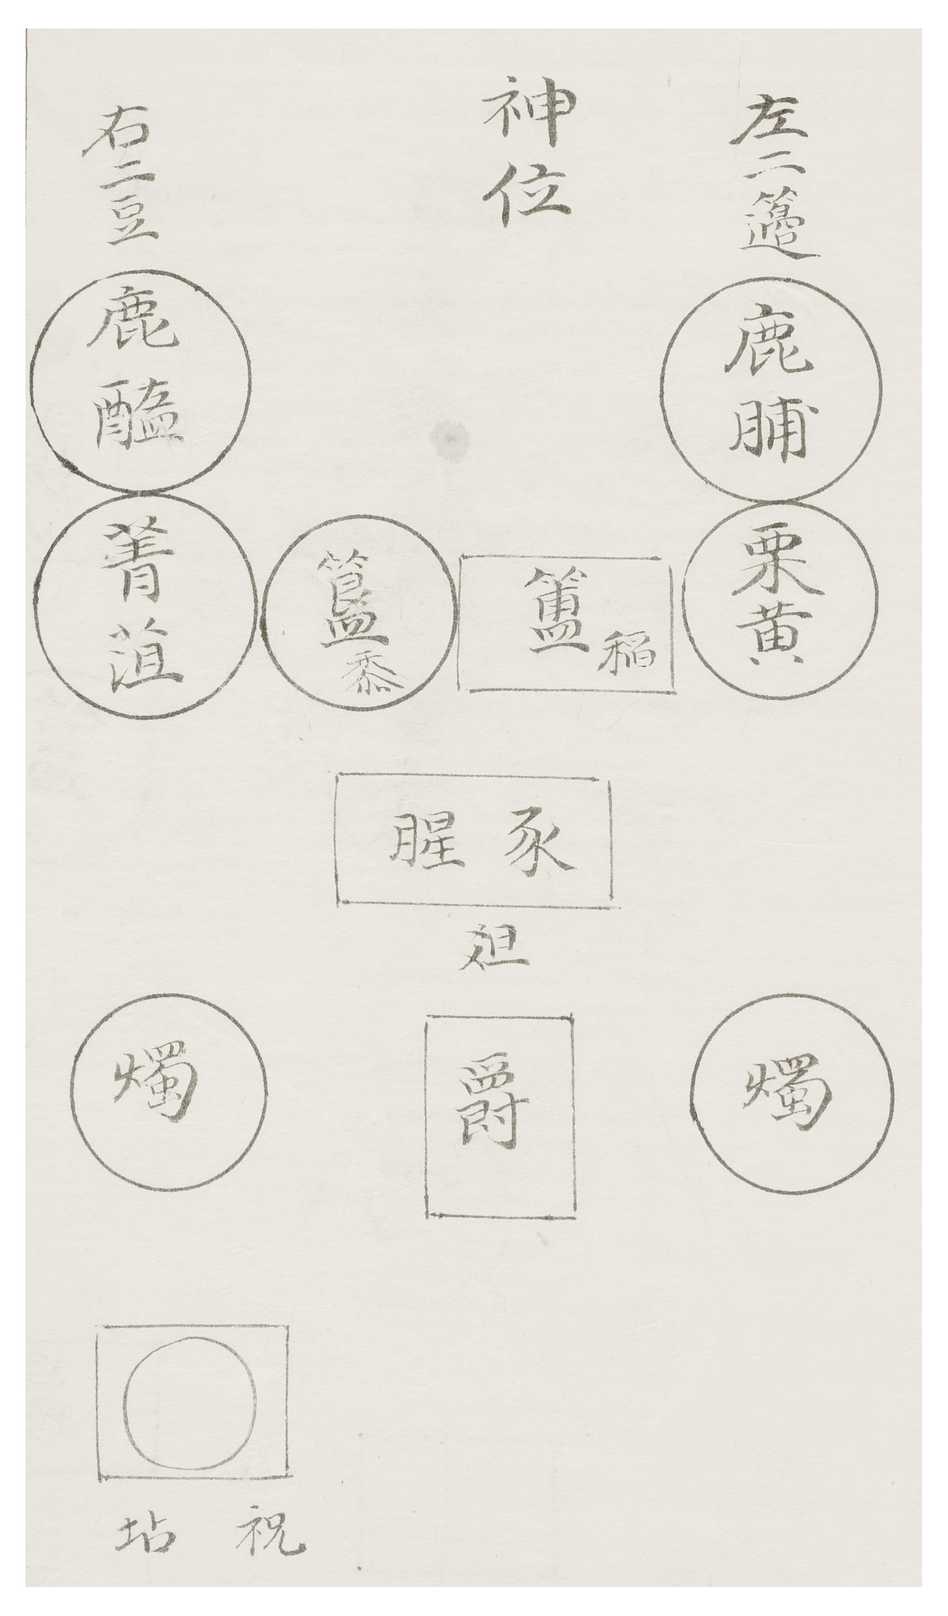 神位
左二籩
右二豆
鹿脯
栗黄
鹿醢
菁菹
簠稻
簋黍
豕腥
俎
爵
燭
燭
祝坫